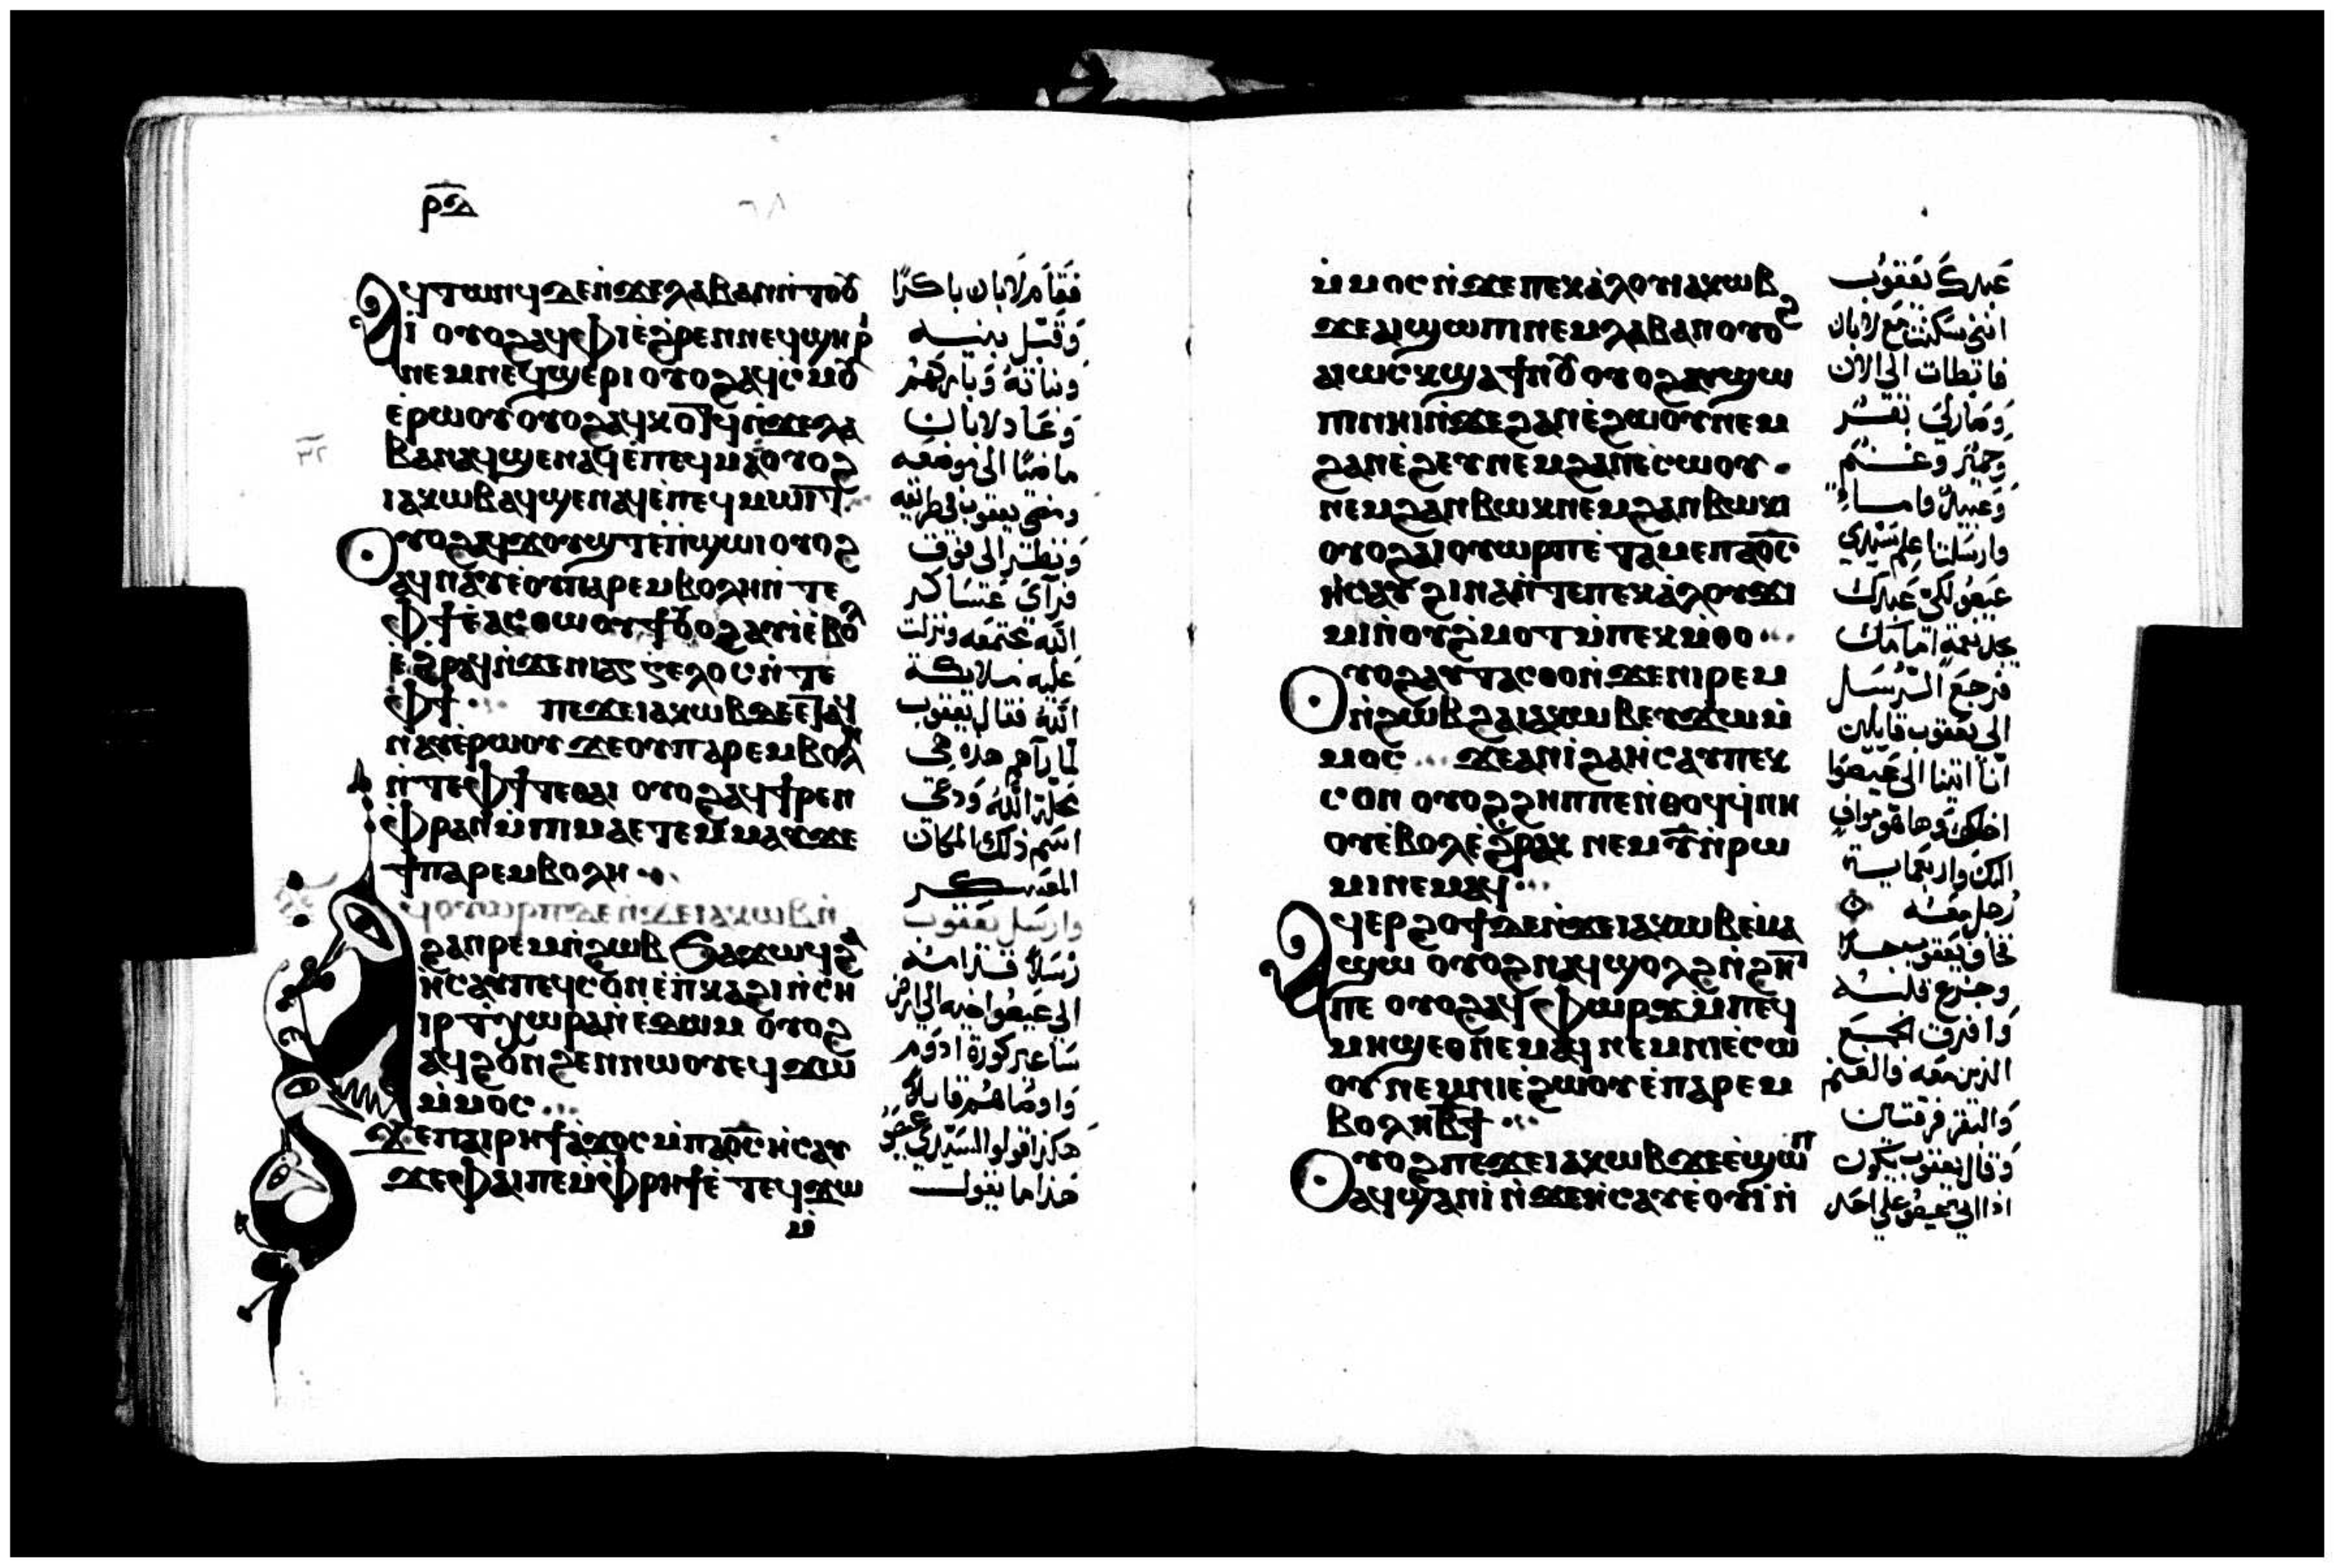 ⲣⲇ
ⲁϥⲧⲱⲛϥ ⲇⲉ ⲛ̇ϫⲉ ⲗⲁⲃⲁⲛ ⲛ̇ⲧⲟⲟⲩ
ⲓ̇ ⲟⲩⲟϩ ⲁϥϯⲫⲓ ⲉ̇ϩⲣⲉⲛ ⲛⲉϥϣⲏⲣⲓ
ⲛⲉⲙ ⲛⲉϥϣⲉⲣⲓ ⲟⲩⲟϩ ⲁϥⲥⲙⲟⲩ
ⲉ̇ⲣⲱⲟⲩ ⲟⲩⲟϩ ⲁϥⲕⲟⲧϥ ⲛ̇ϫⲉ ⲗⲁ
ⲃⲁⲛ ⲁϥϣⲉⲛⲁϥ ⲉ̇ⲡⲉϥⲙⲁ ⲟⲩⲟϩ
ⲓⲁⲕⲱⲃ ⲁϥϣⲉⲛⲁϥ ⲉ̇ⲡⲉϥⲙⲱⲓⲧ
ⲟⲩⲟϩ ⲁϥϫⲟⲩϣⲧ ⲉ̇ⲡϣⲱⲓ ⲟⲩⲟϩ
ⲁϥⲛⲁⲩ ⲉ̇ⲟⲩⲡⲁⲣⲉⲙⲃⲟⲗⲏ ⲛ̇ⲧⲉ
ⲫϯ ⲉ̇ⲁⲥⲑⲱⲟⲩϯ ⲟⲩⲟϩ ⲁⲩⲓ̇ ⲉ̇ⲃⲟⲗ
ⲉ̇ϩⲣⲁϥ ⲛ̇ϫⲉ ⲛⲓⲁⲅⲅⲉⲗⲟⲥ ⲛ̇ⲧⲉ
ⲫϯ ⲡⲉϫⲉ ⲓⲁⲕⲱⲃ ⲇⲉ ⲉⲧⲁϥ
ⲛⲁⲩ ⲉ̇ⲣⲱⲟⲩ ϫⲉ ⲟⲩⲡⲁⲣⲉⲙⲃⲟⲗⲏ
ⲛ̇ⲧⲉ ⲫϯ ⲧⲉ ⲑⲁⲓ ⲟⲩⲟϩ ⲁϥϯⲣⲉⲛ
ⲫⲣⲁⲛ ⲙ̇ⲡⲓⲙⲁ ⲉⲧⲉⲙⲙⲁⲩ ϫⲉ
ϯⲡⲁⲣⲉⲙⲃⲟⲗⲏ
ⲁϥⲟⲩⲱⲣⲡ ⲇⲉ ⲛ̇ϫⲉ ⲓⲁⲕⲱⲃ ⲛ̇
ϩⲁⲛⲣⲉⲙⲛ̇ϩⲱⲃ ϧⲁϫⲱϥ ϩⲁ
ⲏ̇ⲥⲁⲩ ⲡⲉϥⲥⲟⲛ ⲉ̇ⲡⲕⲁϩⲓ ⲛ̇ⲥⲏ
ⲓⲣ ⲧⲭⲱⲣⲁ ⲛ̇ⲉ̇ⲇⲱⲙ ⲟⲩⲟϩ
ⲁϥϩⲟⲛϩⲉⲛ ⲛⲱⲟⲩ ⲉϥϫⲱ
ⲙ̇ⲙⲟⲥ
ϫⲉ ⲡⲁⲓⲣⲏϯ ⲁ̇ϫⲟⲥ ⲙ̇ⲡⲁⲟ̅ⲥ̅ ⲏ̇ⲥⲁⲩ
ϫⲉ ⲫⲁⲓ ⲡⲉ ⲙ̇ⲫⲣⲏϯ ⲉ̇ⲧⲉϥϫⲱ
ⲙ̇
فقام لابان باكرًا
وقبل بنيه
وبناته وباركهم
وعاد لابان
ماضيًا الى موضعه
ومضى يعقوب في طريقه
ونظر الى فوق
فرآى عساكر
الله مجتمعه ونزلت
عليه ملايكة
الله فقال يعقوب
لما رآهم هذه هي
محلة الله ودعى
اسم ذلك المكان
المعسكر
وارسل يعقوب
رسلاً قدامه
الى عيصوا اخيه الى ارض
ساعير كورة ادوم
واوصاهم قايلاً
هكذا قولوا لسيدي عيصو
هذا ما يقول
ⲙ̇ⲙⲟⲥ ⲛ̇ϫⲉ ⲡⲉⲕⲁ̇ⲗⲟⲩ ⲓⲁⲕⲱⲃ
ϫⲉ ⲁⲓϣⲱⲡⲓ ⲛⲉⲙ ⲗⲁⲃⲁⲛ ⲟⲩⲟϩ
ⲁⲓⲱⲥⲕ ϣⲁ ϯⲛⲟⲩ ⲟⲩⲟϩ ⲁⲩϣⲱ
ⲡⲓ ⲛⲏⲓ ⲛ̇ϫⲉ ϩⲁⲛⲉ̇ϩⲱⲟⲩ ⲛⲉⲙ
ϩⲁⲛⲉ̇ϩⲉⲩ ⲛⲉⲙ ϩⲁⲛⲉⲥⲱⲟⲩ
ⲛⲉⲙ ϩⲁⲛⲃⲱⲕ ⲛⲉⲙ ϩⲁⲛⲃⲱⲕⲓ
ⲟⲩⲟϩ ⲁⲓⲟⲩⲱⲣⲡ ⲉ̇ⲧⲁⲙⲉ ⲡⲁⲟ̅ⲥ̅
ⲏ̇ⲥⲁⲩ ϩⲓⲛⲁ ⲛ̇ⲧⲉ ⲡⲉⲕⲁ̇ⲗⲟⲩ ϫⲓ
ⲙⲓ ⲛ̇ⲟⲩϩ̇ⲙⲟⲧ ⲙ̇ⲡⲉⲕⲙ̇ⲑⲟ
ⲟⲩⲟϩ ⲁⲩⲧⲁⲥⲑⲟ ⲛ̇ϫⲉ ⲛⲓⲣⲉⲙ
ⲛ̇ϩⲱⲃ ϩⲁ ⲓⲁⲕⲱⲃ ⲉⲩϫⲱ ⲙ̇
ⲙⲟⲥ ϫⲉ ⲁⲛⲓ̇ ϩⲁ ⲏ̇ⲥⲁⲩ ⲡⲉⲕ
ⲥⲟⲛ ⲟⲩⲟϩ ϩⲏⲡⲡⲉ ⲛ̇ⲑⲟϥ ϥ̇ⲛⲏ
ⲟⲩ ⲉ̇ⲃⲟⲗ ⲉ̇ϩⲣⲁⲕ ⲛⲉⲙ ⲩ̅ ⲛ̇ⲣⲱ
ⲙⲓ ⲛⲉⲙⲁϥ
ⲁϥⲉⲣϩⲟϯ ⲇⲉ ⲛ̇ϫⲉ ⲓⲁⲕⲱⲃ ⲉ̇ⲙⲁ
ϣⲱ ⲟⲩⲟϩ ⲛⲁϥϣⲟⲗϩ ⲛ̇ϩⲏⲧ
ⲡⲉ ⲟⲩⲟϩ ⲁϥⲫⲱⲣϫ ⲙ̇ⲡⲉϥ
ⲙⲏϣ ⲉⲑⲛⲉⲙⲁϥ ⲛⲉⲙ ⲛⲓⲉⲥⲱ
ⲟⲩ ⲛⲉⲙ ⲛⲓⲉ̇ϩⲱⲟⲩ ⲉ̇ⲡⲁⲣⲉⲙ
ⲃⲟⲗⲏ ⲃ̅ϯ
ⲟⲩⲟϩ ⲡⲉϫⲉ ⲓⲁⲕⲱⲃ ϫⲉ ⲉ̇ϣⲱⲡ
ⲁϥϣⲁⲛⲓ̇ ⲛ̇ϫⲉ ⲏ̇ⲥⲁⲩ ⲉ̇ⲟⲩⲓ̇ ⲛ̇
عبدك يعقوب
اننى سكنت مع لابان
فابطات الى الان
وصار لي بقر
وحمير وغنم
وعبيد واماء
وارسلت اعلم سيدي
عيصو لكي عبدك
يجد نعمة امامك
فرجع الرسل
الى يعقوب قايلين
انا اتينا الى عيصوا
اخيك وها هو موافي
اليك واربعماية
رجل معه
فخاف يعقوب جدا
وجزع قلبه
وافرق الجمع
الذين معه والغنم
والبقر فرقتين
وقال يعقوب يكون
اذا اتى عيصو على احد